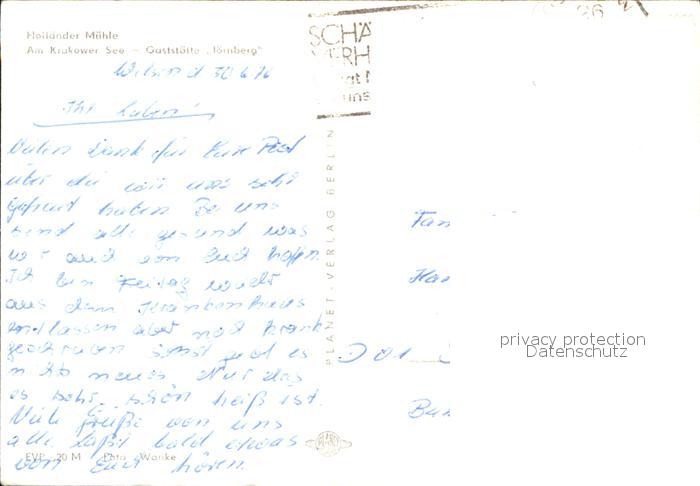 Holländer Mühle
Am Krakower See - Gaststätte „Jörnberg"
30.6.76
Ihr Lieben!
Vielen Dank für Eure Post
über die wir uns sehr
gefreut haben Bei uns
sind alle gesund was
wir auch von Euch hoffen.
Ich bin Freitag wieder
aus dem Krankenhaus
entlassen aber noch krank
geschrieben sonst gibt es
nichts neues Nur das
es sehr schön heiß ist.
Viele Grüße von uns
alle laßt bald etwas
von Euch hören.
EVP -,20 M Foto: Warnke
PLANET-VERLAG BERLIN
PLANET
SCHÄ
ERH
gt
uns
76
Fam
Han
D 01
privacy protection
Datenschutz